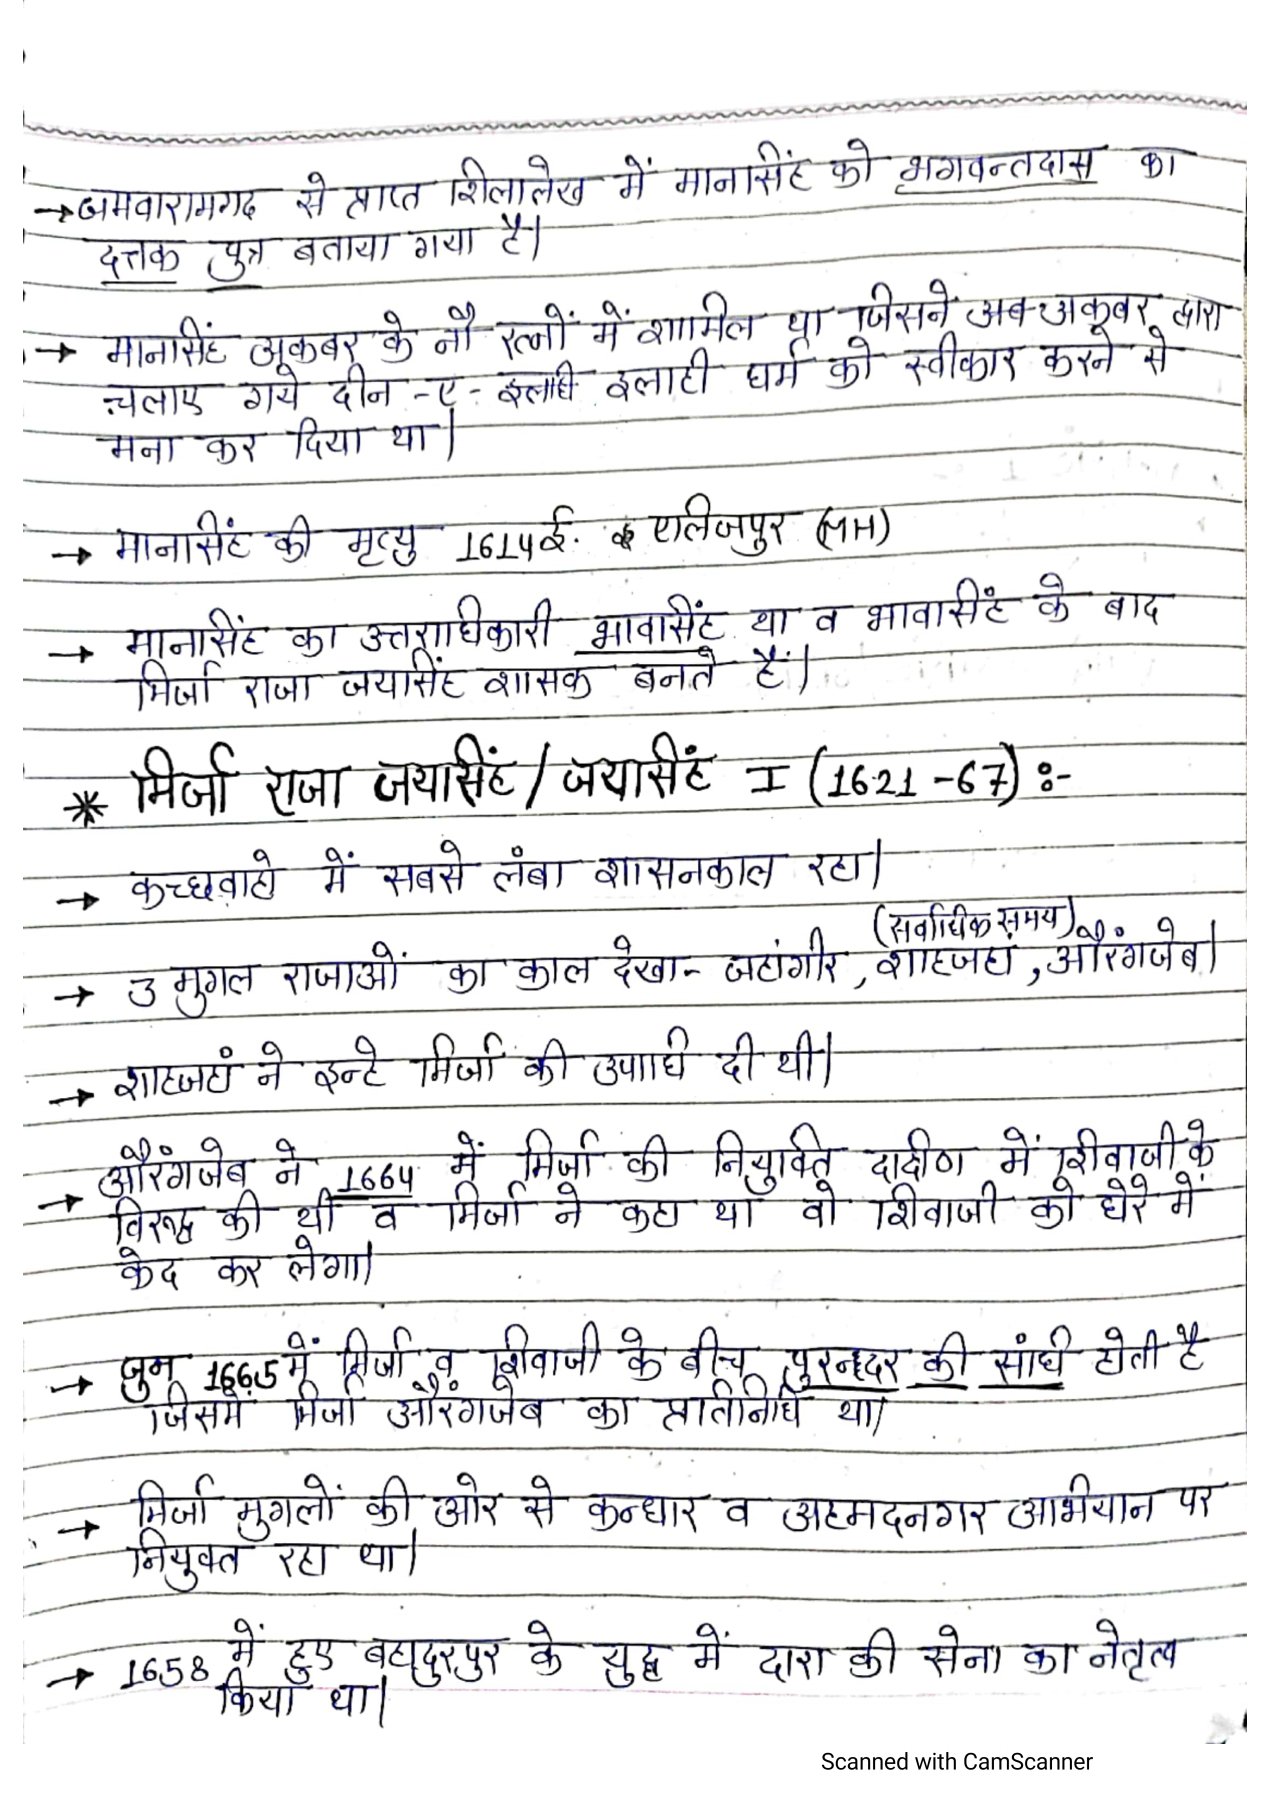 → जमवारामगढ से प्राप्त शिलालेख में मानसिंह को भगवन्तदास का
दत्तक पुत्र बताया गया है।
→ मानसिंह अकबर के नौ रत्नों में शामिल था जिसने अब अकबर द्वारा
चलाए गये दीन -ए- इलाही इलाही धर्म को स्वीकार करने से
मना कर दिया था।
→ मानसिंह की मृत्यु 1614 ई. एलिजपुर (MH)
→ मानसिंह का उत्तराधिकारी भावसिंह था व भावसिंह के बाद
मिर्जा राजा जयसिंह शासक बनते हैं।
* मिर्जा राजा जयसिंह / जयसिंह I (1621-67) :-
→ कच्छवाहो में सबसे लंबा शासनकाल रहा।
(सर्वाधिक समय)
→ 3 मुगल राजाओं का काल देखा- जहांगीर, शाहजहां, औरंगजेब।
→ शाहजहां ने इन्हे मिर्जा की उपाधि दी थी।
→ औरंगजेब ने 1664 में मिर्जा की नियुक्ति दक्षिण में शिवाजी के
विरूद्ध की थी व मिर्जा ने कहा था वो शिवाजी को घेरे में
केद कर लेगा।
→ जुन 1665 में मिर्जा व शिवाजी के बीच पुरन्दर की संधि होती है
जिसमें मिर्जा औरंगजेब का प्रतिनिधि था।
→ मिर्जा मुगलों की ओर से कन्धार व अहमदनगर अभियान पर
नियुक्त रहा था।
→ 1658 में हुए बहादुरपुर के युद्ध में दारा की सेना का नेतृत्व
किया था।
Scanned with CamScanner